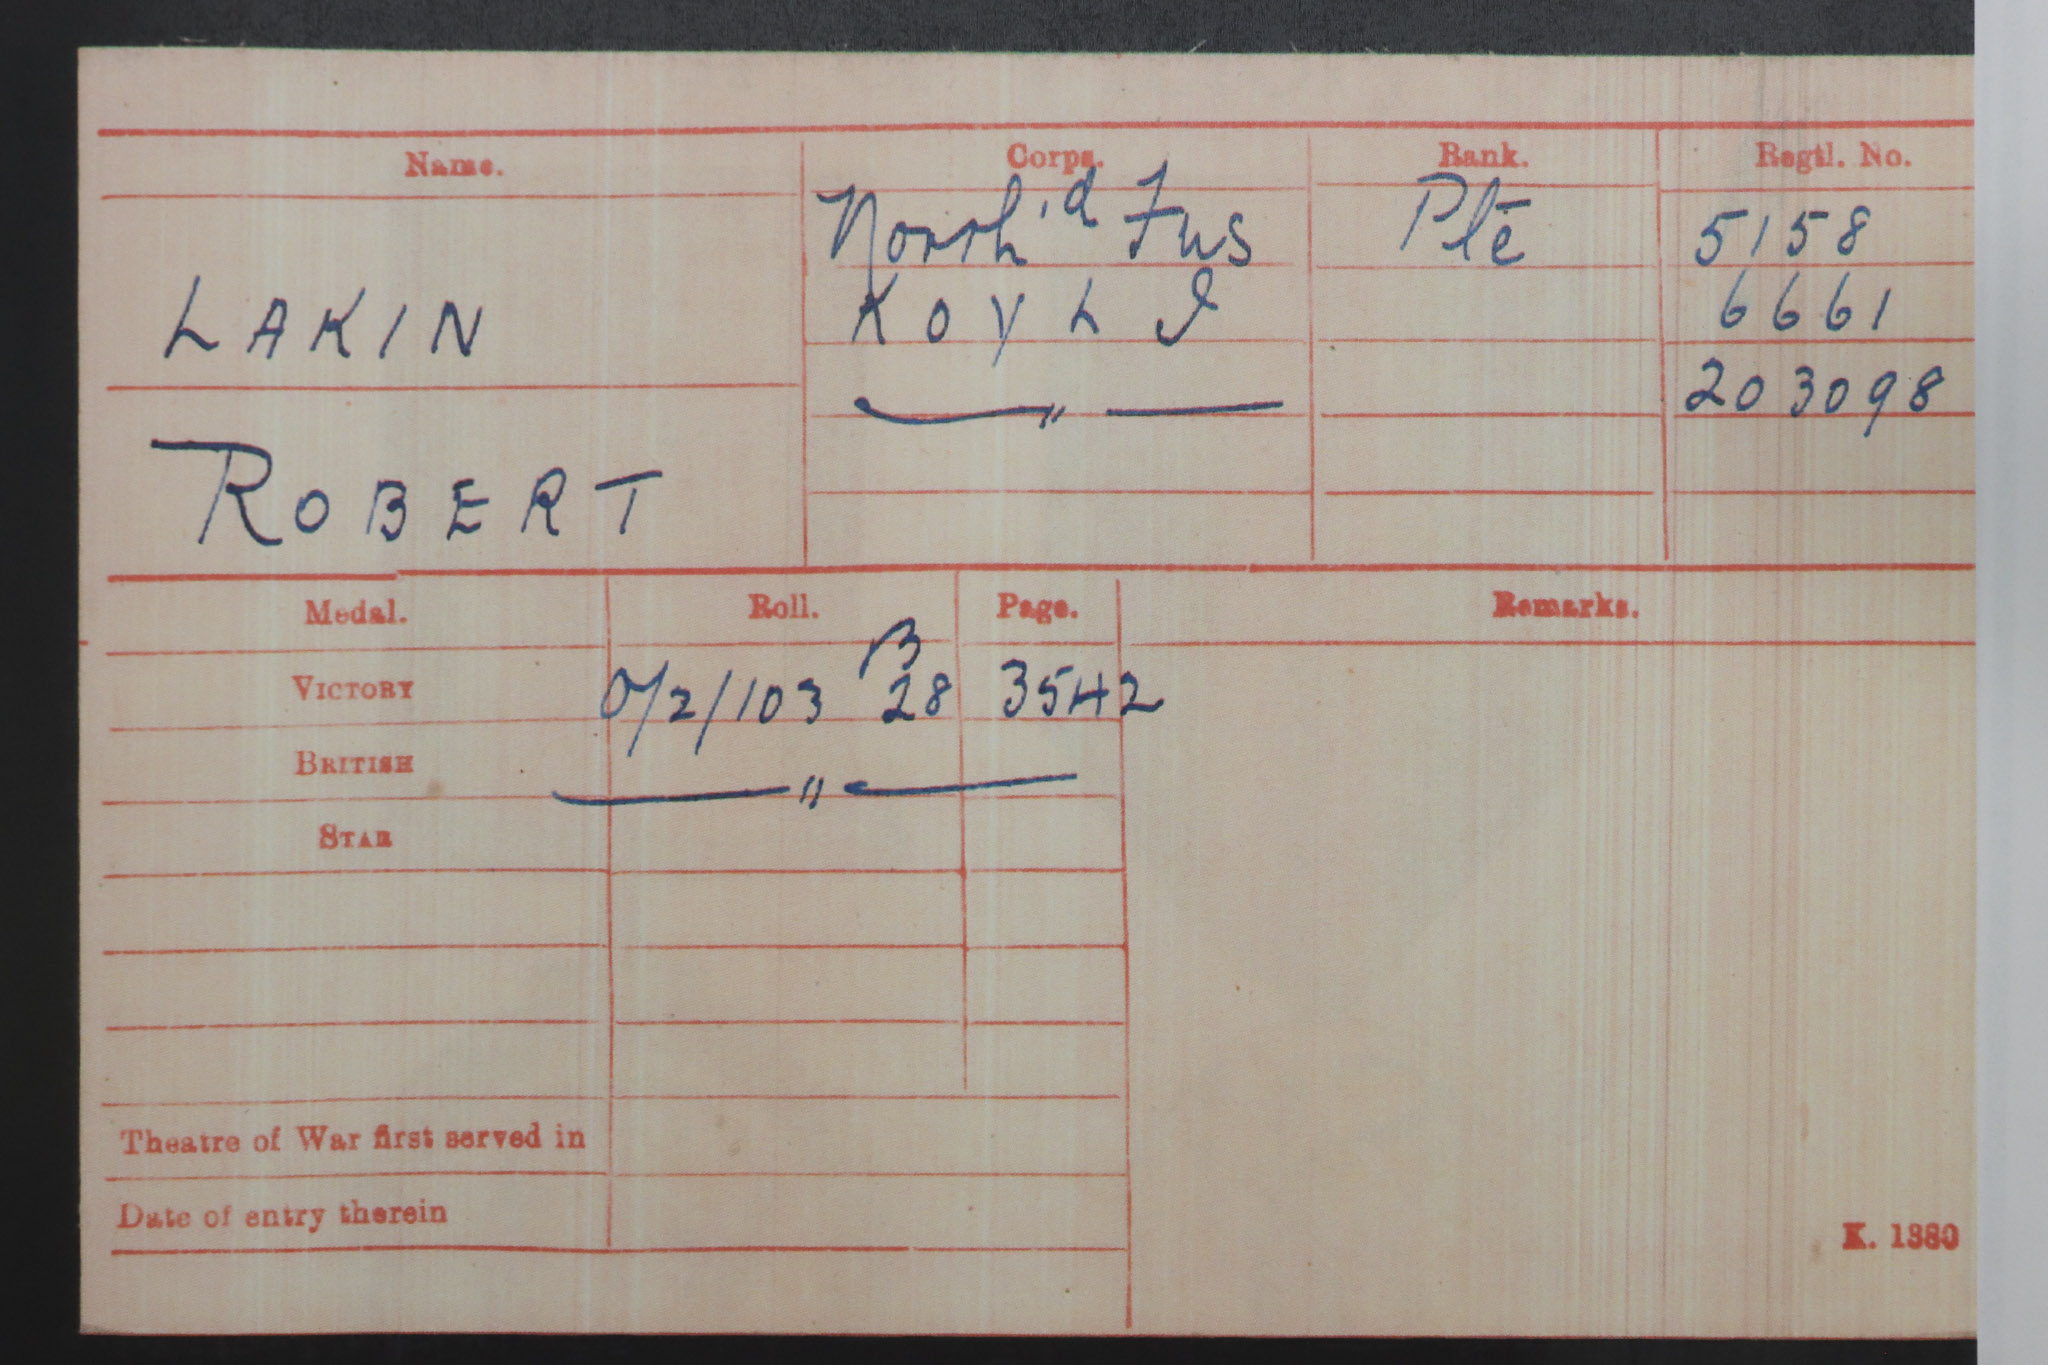 Name. Corps. Rank. Regtl. No.
North'd Fus Pte 5158
LAKIN K O Y L I 6661
" 203098
ROBERT
Medal. Roll. Page. Remarks.
VICTORY O/2/103 B 28 3542
BRITISH "
STAR
Theatre of War first served in
Date of entry therein
K. 1380